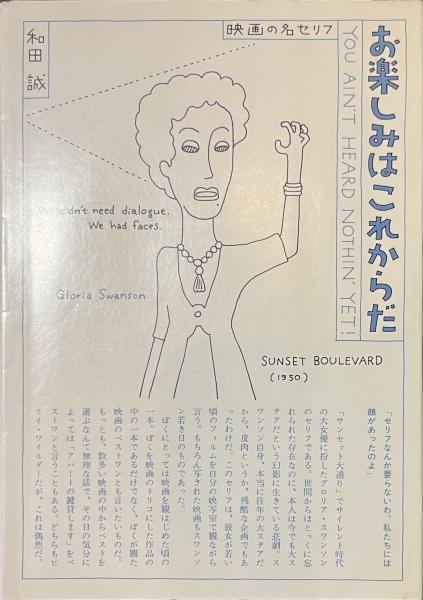 お楽しみはこれからだ
YOU AIN'T HEARD NOTHIN' YET!
映画の名セリフ
和田 誠
didn't need dialogue.
We had faces.
Gloria Swanson
SUNSET BOULEVARD
(1950)
「セリフなんか要らないわ。私たちには
顔があったのよ」
「サンセット大通り」でサイレント時代
の大女優に扮したグロリア・スワンソン
のセリフである。世間からはとっくに忘
れられた存在なのに、本人は今でも大ス
タアだという幻影に生きている悲劇。ス
ワンソン自身、本当に往年の大スタアだ
から、皮肉というか、残酷な企画でもあ
ったわけだ。このセリフは、彼女が若い
頃のフィルムを自分の映写室で観ながら
言う。もちろん写された映画もスワンソ
ン若き日のものであった。
ぼくにとっては映画を観はじめた頃の
一本。ぼくを映画のトリコにした作品の
中の一本であるだけでなく、ぼくが観た
映画のベストワンとも言いたいものだ。
もっとも、数多い映画の中からベストを
選ぶなんて無理な話で、その日の気分に
よっては「アパートの鍵貸します」をベ
ストワンと言うこともある。どちらもビ
リイ・ワイルダーだが、これは偶然だ。